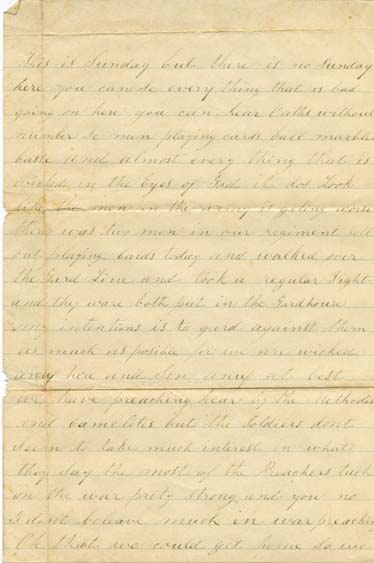 This is Sunday but there is no Sunday
here you can se every thing that is bad
going on here you can hear Oaths without
number se men playing cards ball marbles
and almost every thing that is
wicked in the Eyes of God it dos Look
like the men in the army is geting worse
there was two men in our regiment fell
out playing Cards today and walked over
the Gard Line and took a regular Fight
and they ware both put in the Gardhouse
my intentions is to gard against them
as much as posible for we are wicked
here and Sin any at best
we have preaching hear by the Methodist
and but the Soldiers dont
seem to take much interest in what
they say the most of the Preachers tuch
on the war prety strong and you no
I dont beleave much in war preaching
Oh that we could get home so we